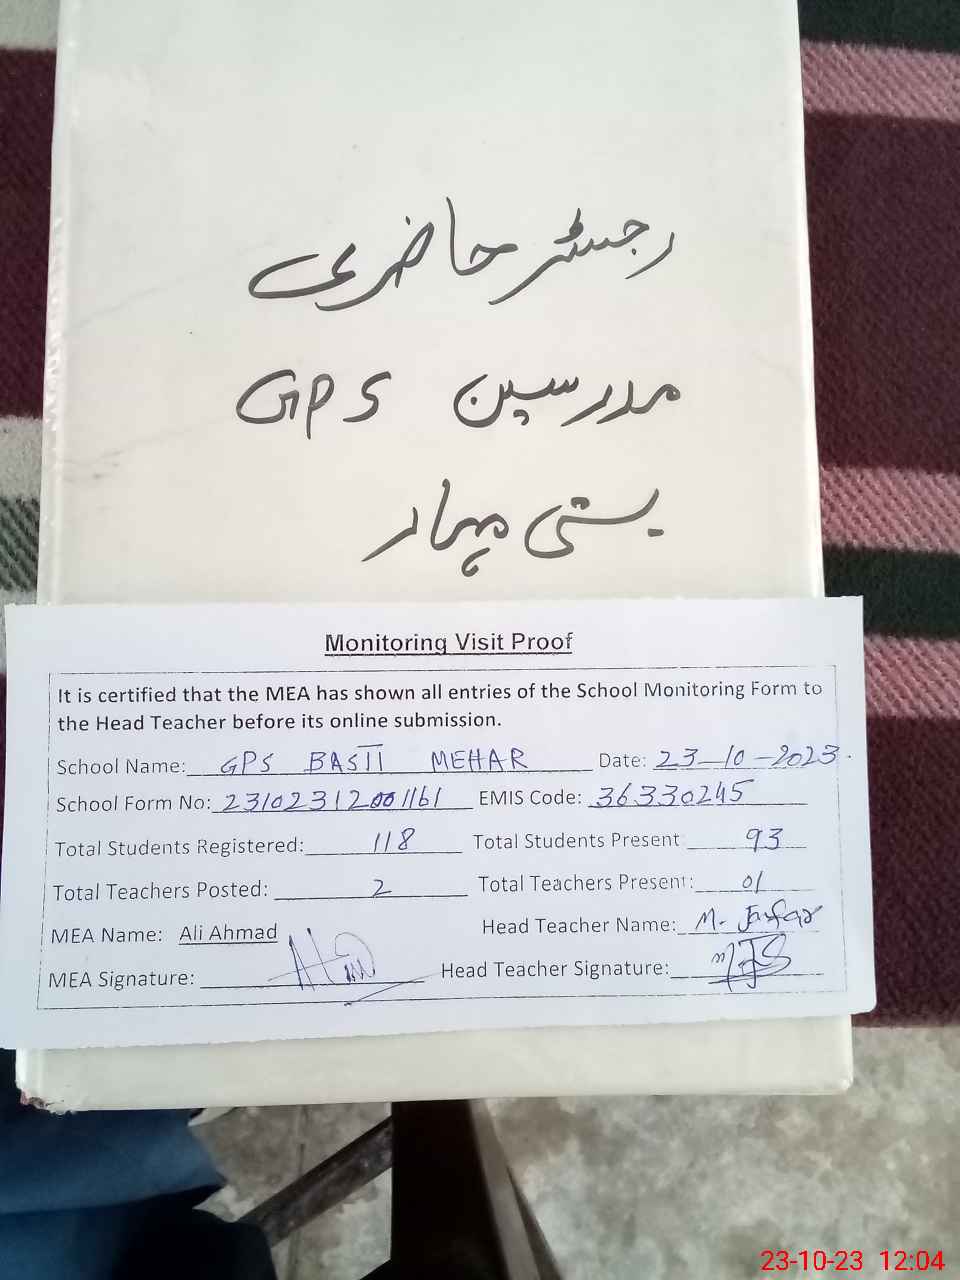 رجسٹر حاضری
مدرسین GPS
بستی مہار
Monitoring Visit Proof
It is certified that the MEA has shown all entries of the School Monitoring Form to
the Head Teacher before its online submission.
School Name: GPS BASTI MEHAR Date: 23-10-2023.
School Form No: 23102312001161 EMIS Code: 36330245
Total Students Registered: 118 Total Students Present: 93
Total Teachers Posted: 2 Total Teachers Present: 01
MEA Name: Ali Ahmad Head Teacher Name: M. Jaffar
MEA Signature: Head Teacher Signature:
23-10-23 12:04